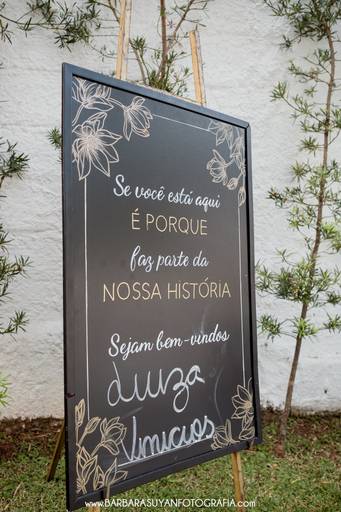 Se você está aqui
É PORQUE
faz parte da
NOSSA HISTÓRIA
Sejam bem-vindos
Luiza
Vinicios
www.BARBARASUYANFOTOGRAFIA.com